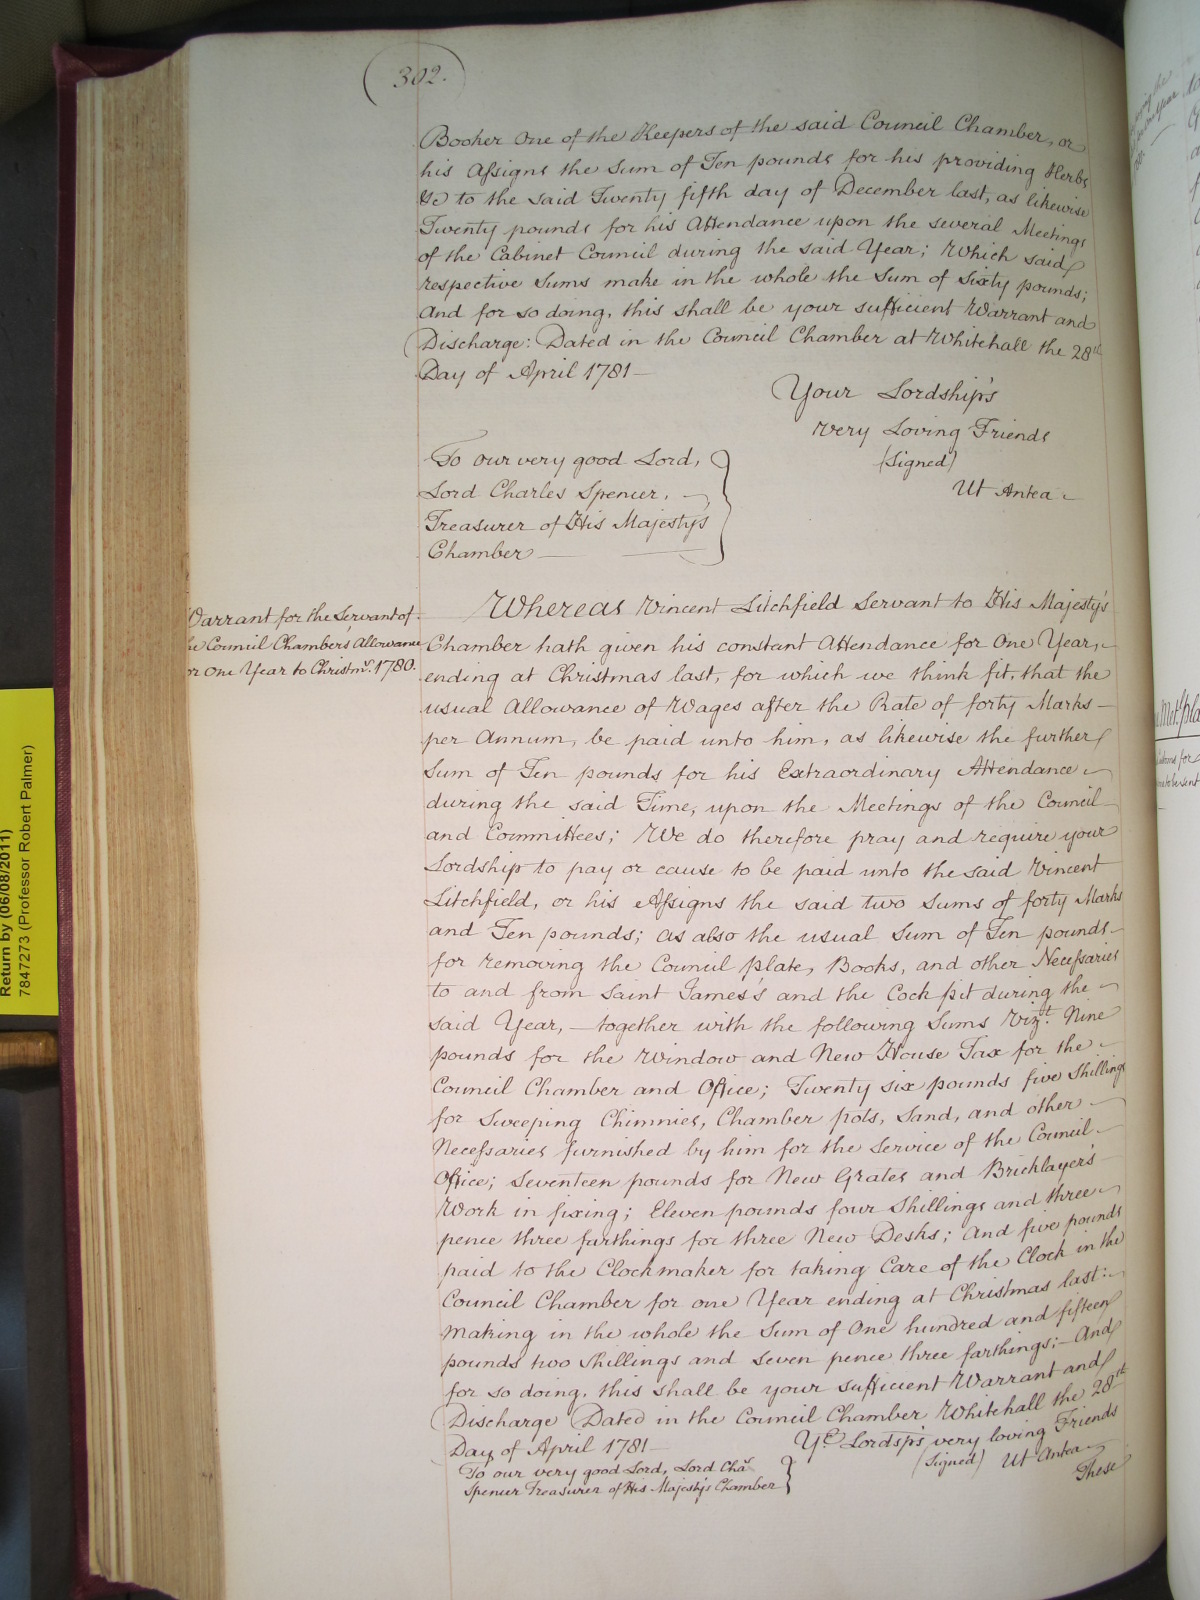 302.
Booker One of the Keepers of the said Council Chamber, or
his Assigns the Sum of Ten pounds for his providing Herbs
&c to the said Twenty fifth day of December last, as likewise
Twenty pounds for his Attendance upon the several Meetings
of the Cabinet Council during the said Year; Which said
respective Sums make in the whole the Sum of Sixty pounds;
And for so doing, this shall be your sufficient Warrant and
Discharge: Dated in the Council Chamber at Whitehall the 28th
Day of April 1781—
Your Lordship's
very Loving Friends
(Signed)
Ut Antea
To our very good Lord,
Lord Charles Spencer,
Treasurer of His Majesty's
Chamber
Warrant for the Servant of
he Council Chambers' Allowance
or One Year to Christms. 1780.
Whereas Vincent Litchfield Servant to His Majesty's
Chamber hath given his constant Attendance for One Year,
ending at Christmas last, for which we think fit, that the
usual Allowance of Wages after the Rate of forty Marks—
per Annum, be paid unto him, as likewise the further
Sum of Ten pounds for his Extraordinary Attendance
during the said Time, upon the Meetings of the Council
and Committees; We do therefore pray and require your
Lordship to pay or cause to be paid unto the said Vincent
Litchfield, or his Assigns the said two Sums of forty Marks
and Ten pounds; as also the usual Sum of Ten pounds
for removing the Council plate, Books, and other Necessaries
to and from Saint James's and the Cock pit during the
said Year, — together with the following Sums Vizt. Nine
pounds for the Window and New House Tax for the
Council Chamber and Office; Twenty six pounds five Shillings
for Sweeping Chimnies, Chamber pots, Sand, and other
Necessaries furnished by him for the Service of the Council
Office; Seventeen pounds for New Grates and Bricklayer's
Work in fixing; Eleven pounds four Shillings and three
pence three farthings for three New Desks; And five pounds
paid to the Clockmaker for taking Care of the Clock in the
Council Chamber for one Year ending at Christmas last:
Making in the whole the Sum of One hundred and fifteen
pounds two Shillings and Seven pence three farthings;—And
for so doing, this shall be your sufficient Warrant and
Discharge Dated in the Council Chamber Whitehall the 28th
Day of April 1781—
Yr. Lordsp's very loving Friends
(Signed) Ut Antea
To our very good Lord, Lord Chas.
Spencer Treasurer of His Majesty's Chamber
These
Return by (06/08/2011)
7847273 (Professor Robert Palmer)